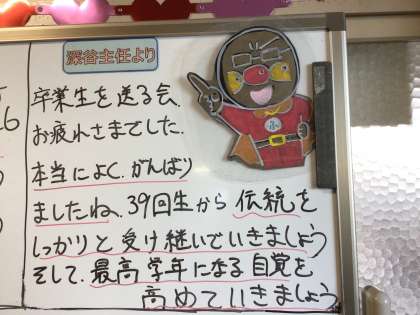 深谷主任より
卒業生を送る会、
お疲れさまでした。
本当によく、がんばり
ましたね、39回生から伝統を
しっかりと受け継いでいきましょう
そして、最高学年になる自覚を
高めていきましょう
ふ
26